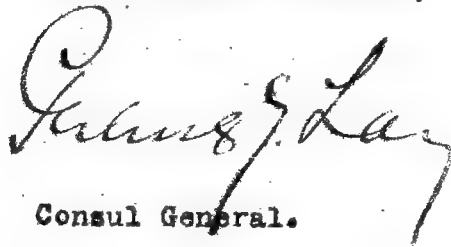 Julius G. Lay
Consul General.